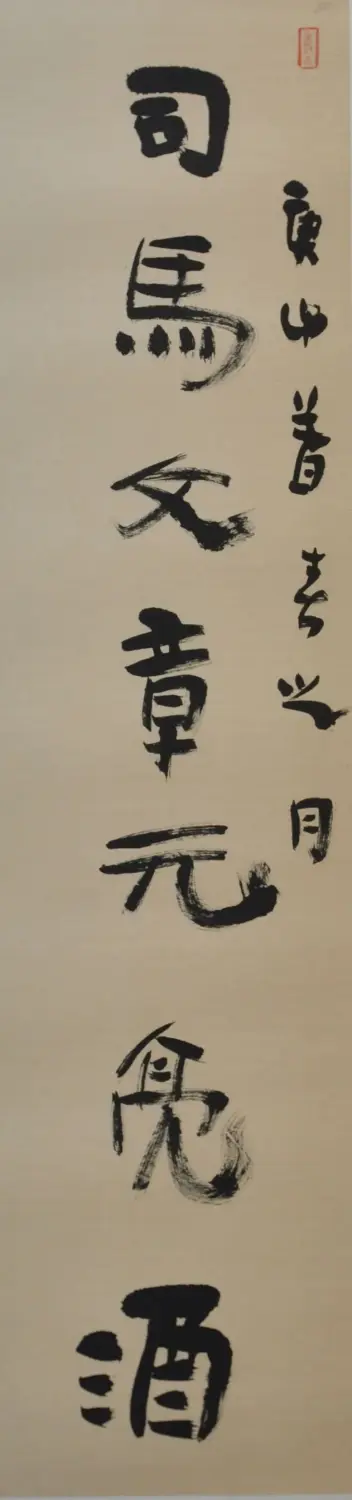 庚申暮春之月
司馬文章元亮酒